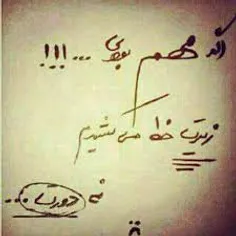 اگه مهم بودی ...!!!
زیرت خط می کشیدم
نه دورت ...